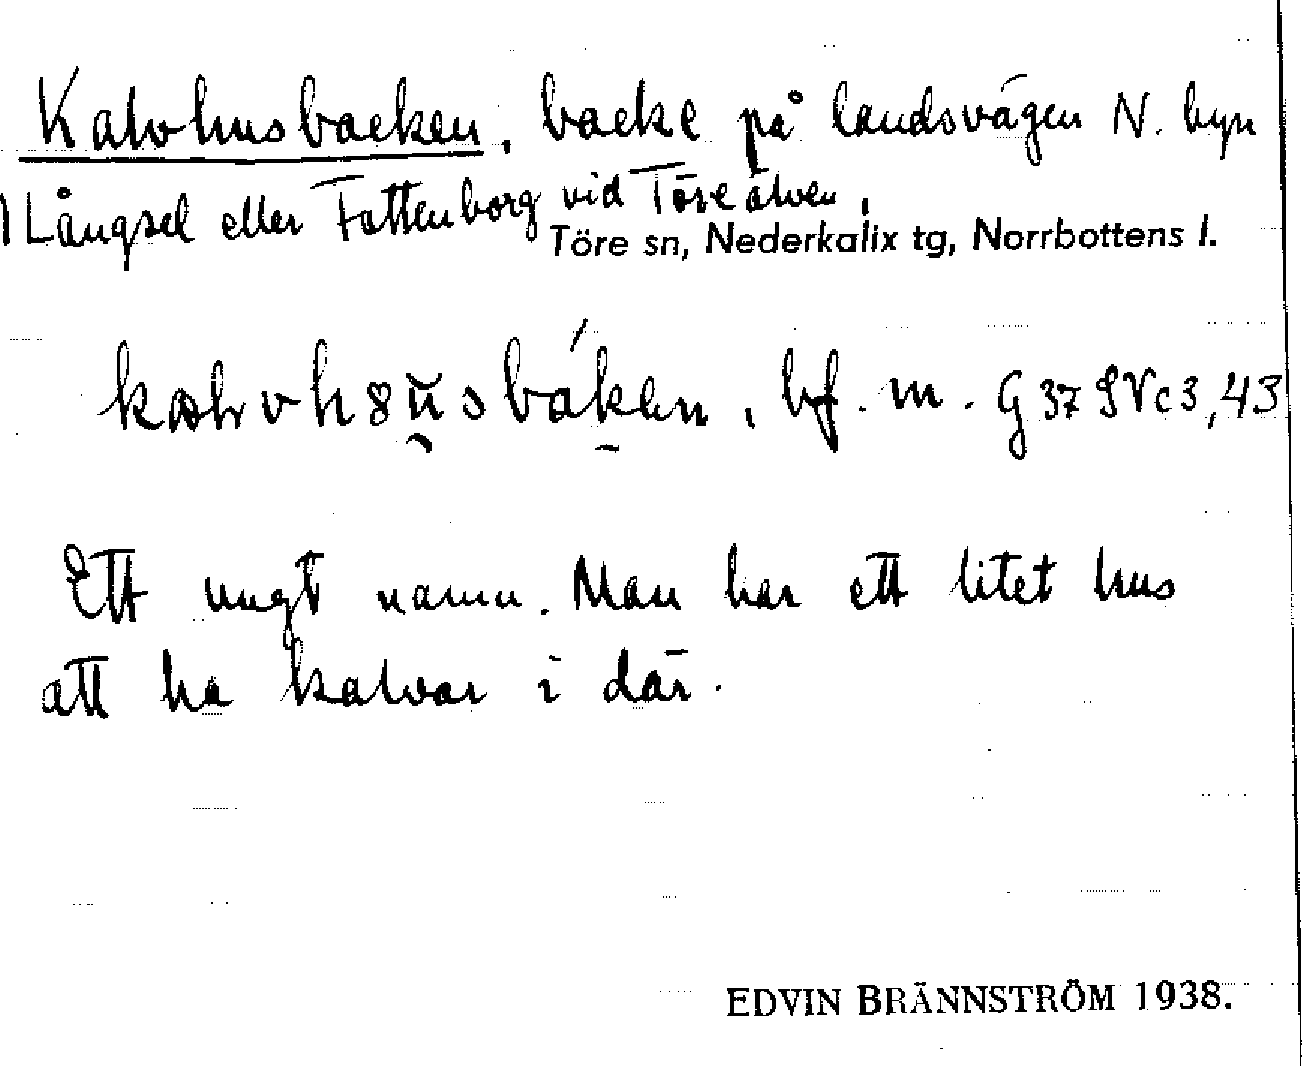 Kalvhusbacken, backe på landsvägen N. byn
Långsel eller Fattenborg vid Töreälven,
Töre sn, Nederkalix tg, Norrbottens l.
bf. m. G 37 SVc3,43
Ett ungt namn. Man har ett litet hus
att ha kalvar i där.
EDVIN BRÄNNSTRÖM 1938.